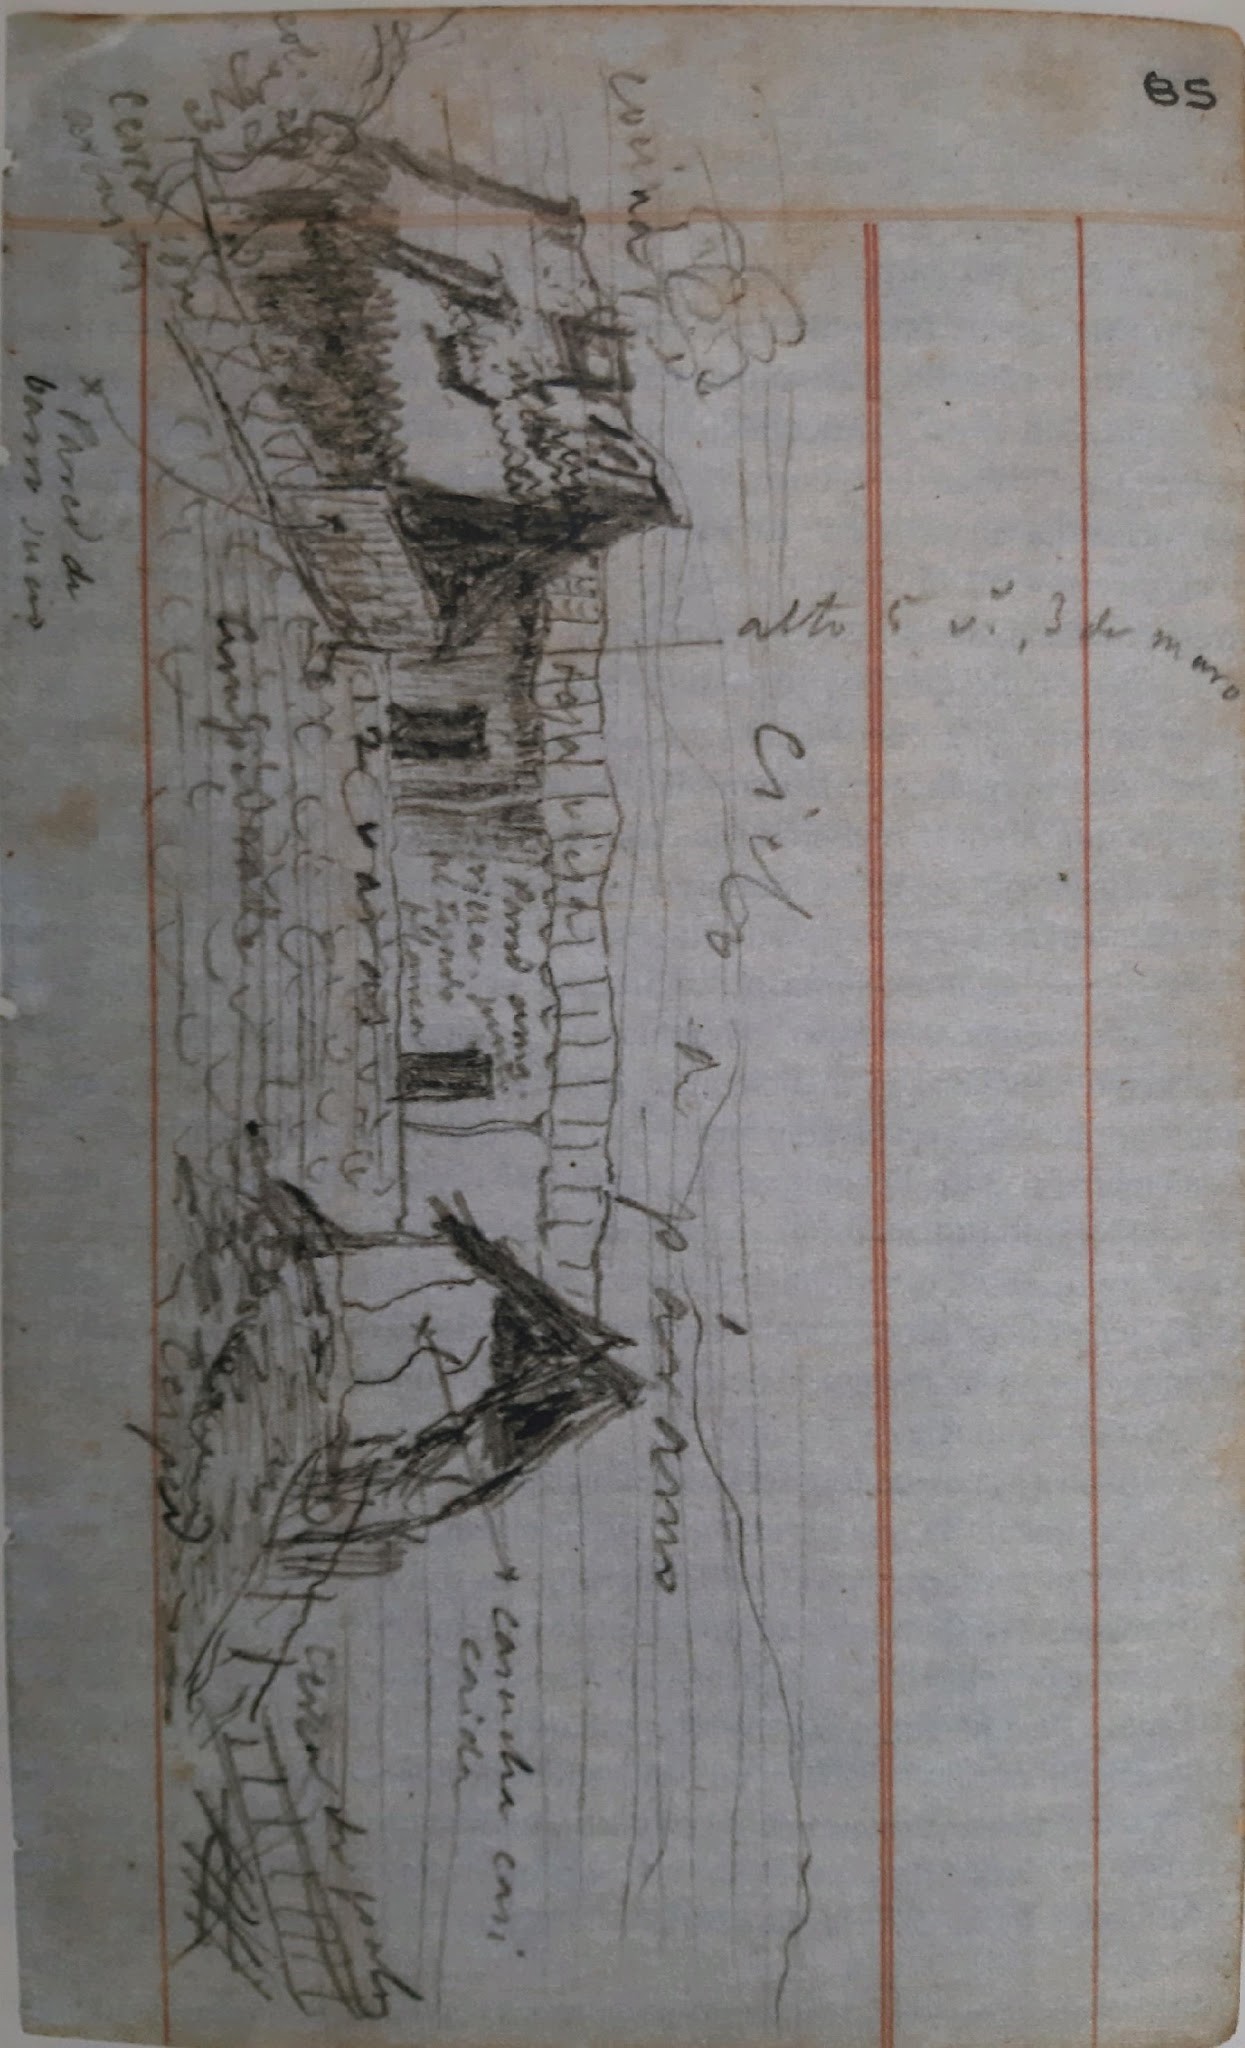 85
alto 5 vs., 3 de muro
cielo
de páramo
cocina
teja vieja
Pared ama-
rilla. junto
al tejado
blanca
casucha casi
caida
12 varas
cerca de palos
col
Empedrado
cesped
cerca con
arbustos
Pared de
barro sucio